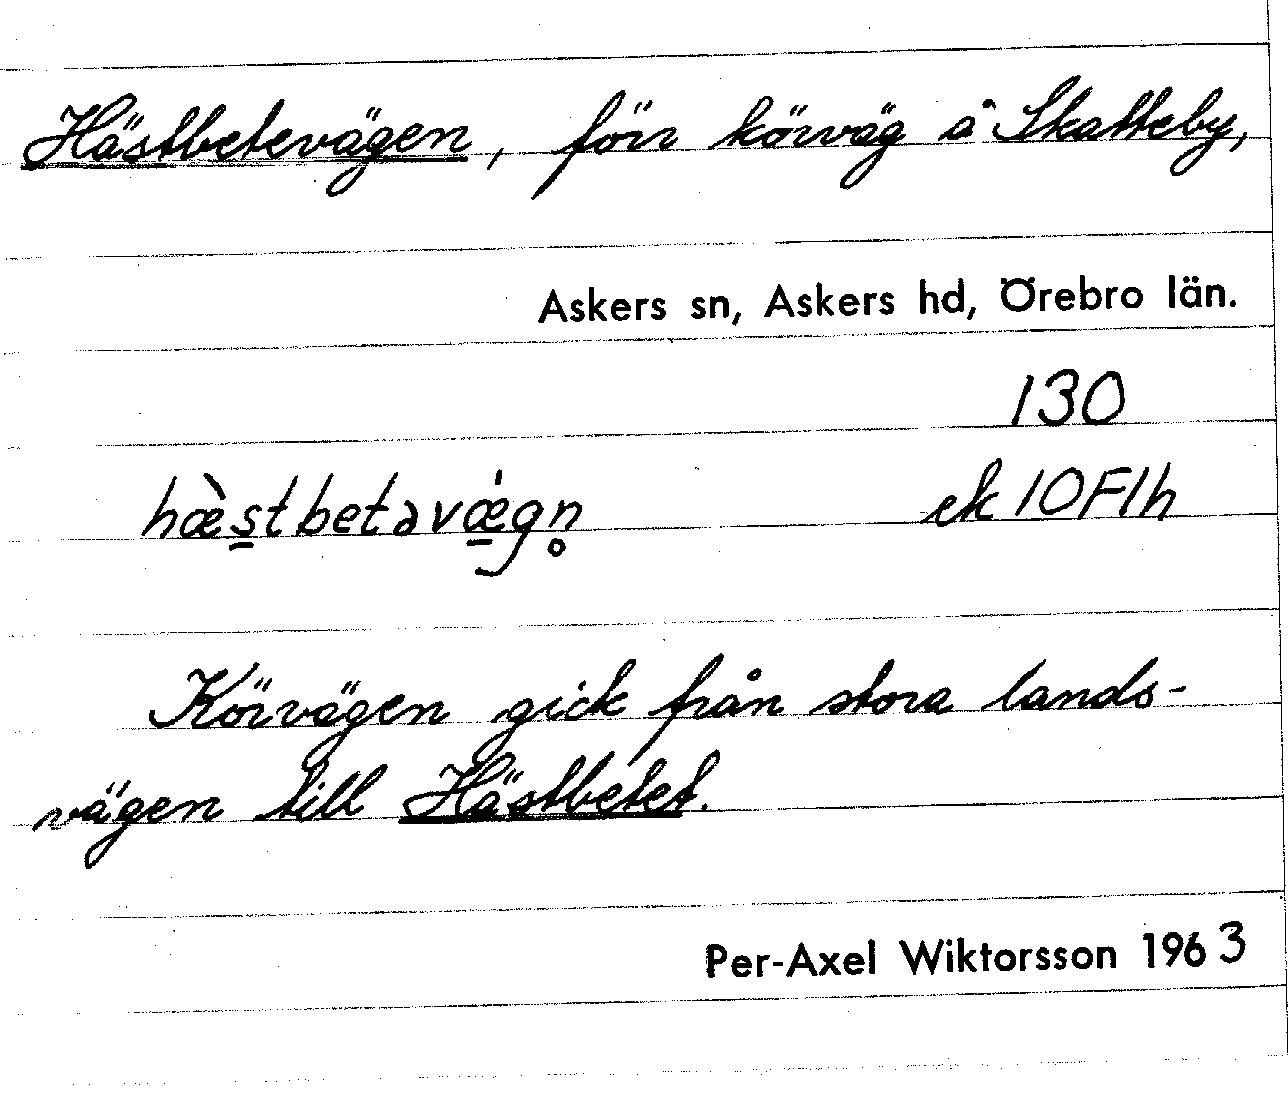 Hästbetevägen, förr körväg å Skatteby,
Askers sn, Askers hd, Örebro län.
130
hæ̀stbetəvǽgn̥ ek 10F1h
Körvägen gick från stora lands-
vägen till Hästbetet.
Per-Axel Wiktorsson 1963